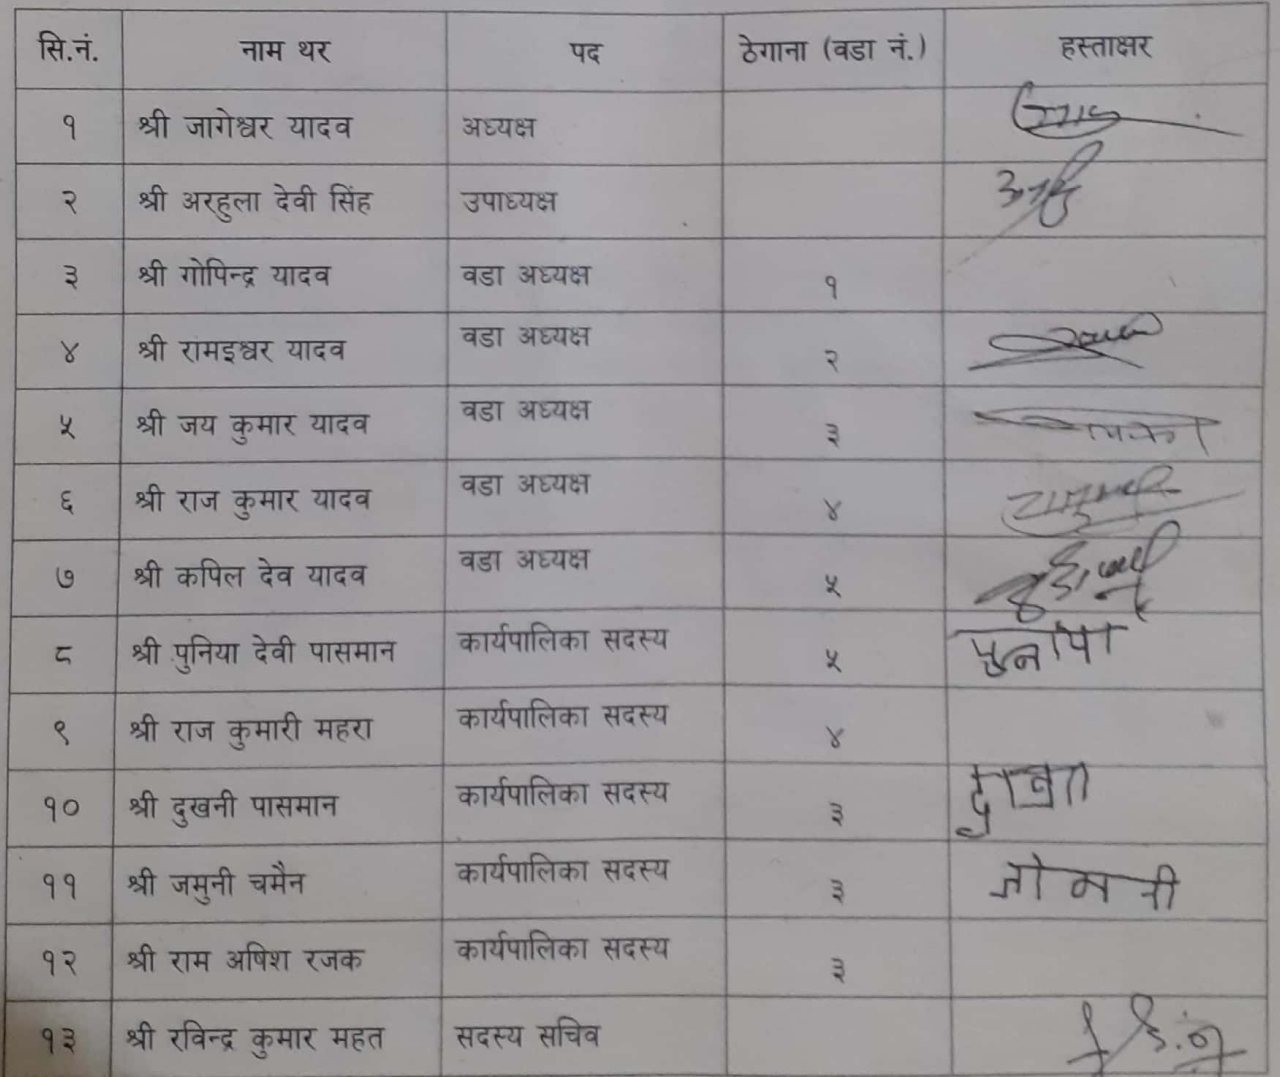 सि.नं. नाम थर पद ठेगाना (वडा नं.) हस्ताक्षर
१ श्री जागेश्वर यादव अध्यक्ष
२ श्री अरहुला देवी सिंह उपाध्यक्ष
३ श्री गोपिन्द्र यादव वडा अध्यक्ष १
४ श्री रामइश्वर यादव वडा अध्यक्ष २
५ श्री जय कुमार यादव वडा अध्यक्ष ३
६ श्री राज कुमार यादव वडा अध्यक्ष ४
७ श्री कपिल देव यादव वडा अध्यक्ष ५
८ श्री पुनिया देवी पासमान कार्यपालिका सदस्य ५
९ श्री राज कुमारी महरा कार्यपालिका सदस्य ४
१० श्री दुखनी पासमान कार्यपालिका सदस्य ३
११ श्री जमुनी चमैन कार्यपालिका सदस्य ३ जोमनी
१२ श्री राम अषिश रजक कार्यपालिका सदस्य ३
१३ श्री रविन्द्र कुमार महत सदस्य सचिव